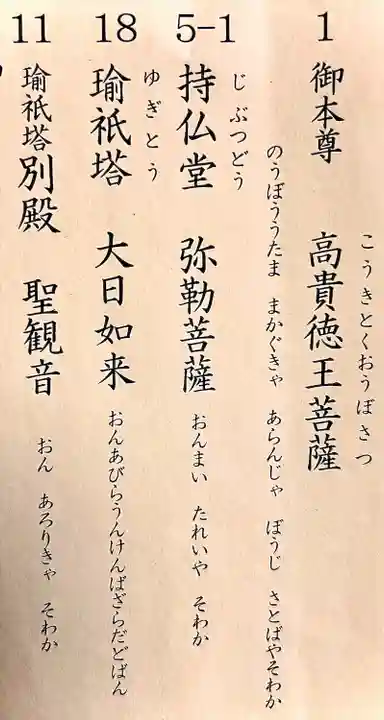 1 御本尊 高貴徳王菩薩
こうきとくおうぼさつ
のうぼううたま まかぐきゃ あらんじゃ ぼうじ さとばやそわか
5-1 持仏堂 弥勒菩薩 おんまい たれいや そわか
じぶつどう
18 瑜祇塔 大日如来 おんあびらうんけんばざらだどばん
ゆぎとう
11 瑜祇塔別殿 聖観音 おん あろりきゃ そわか